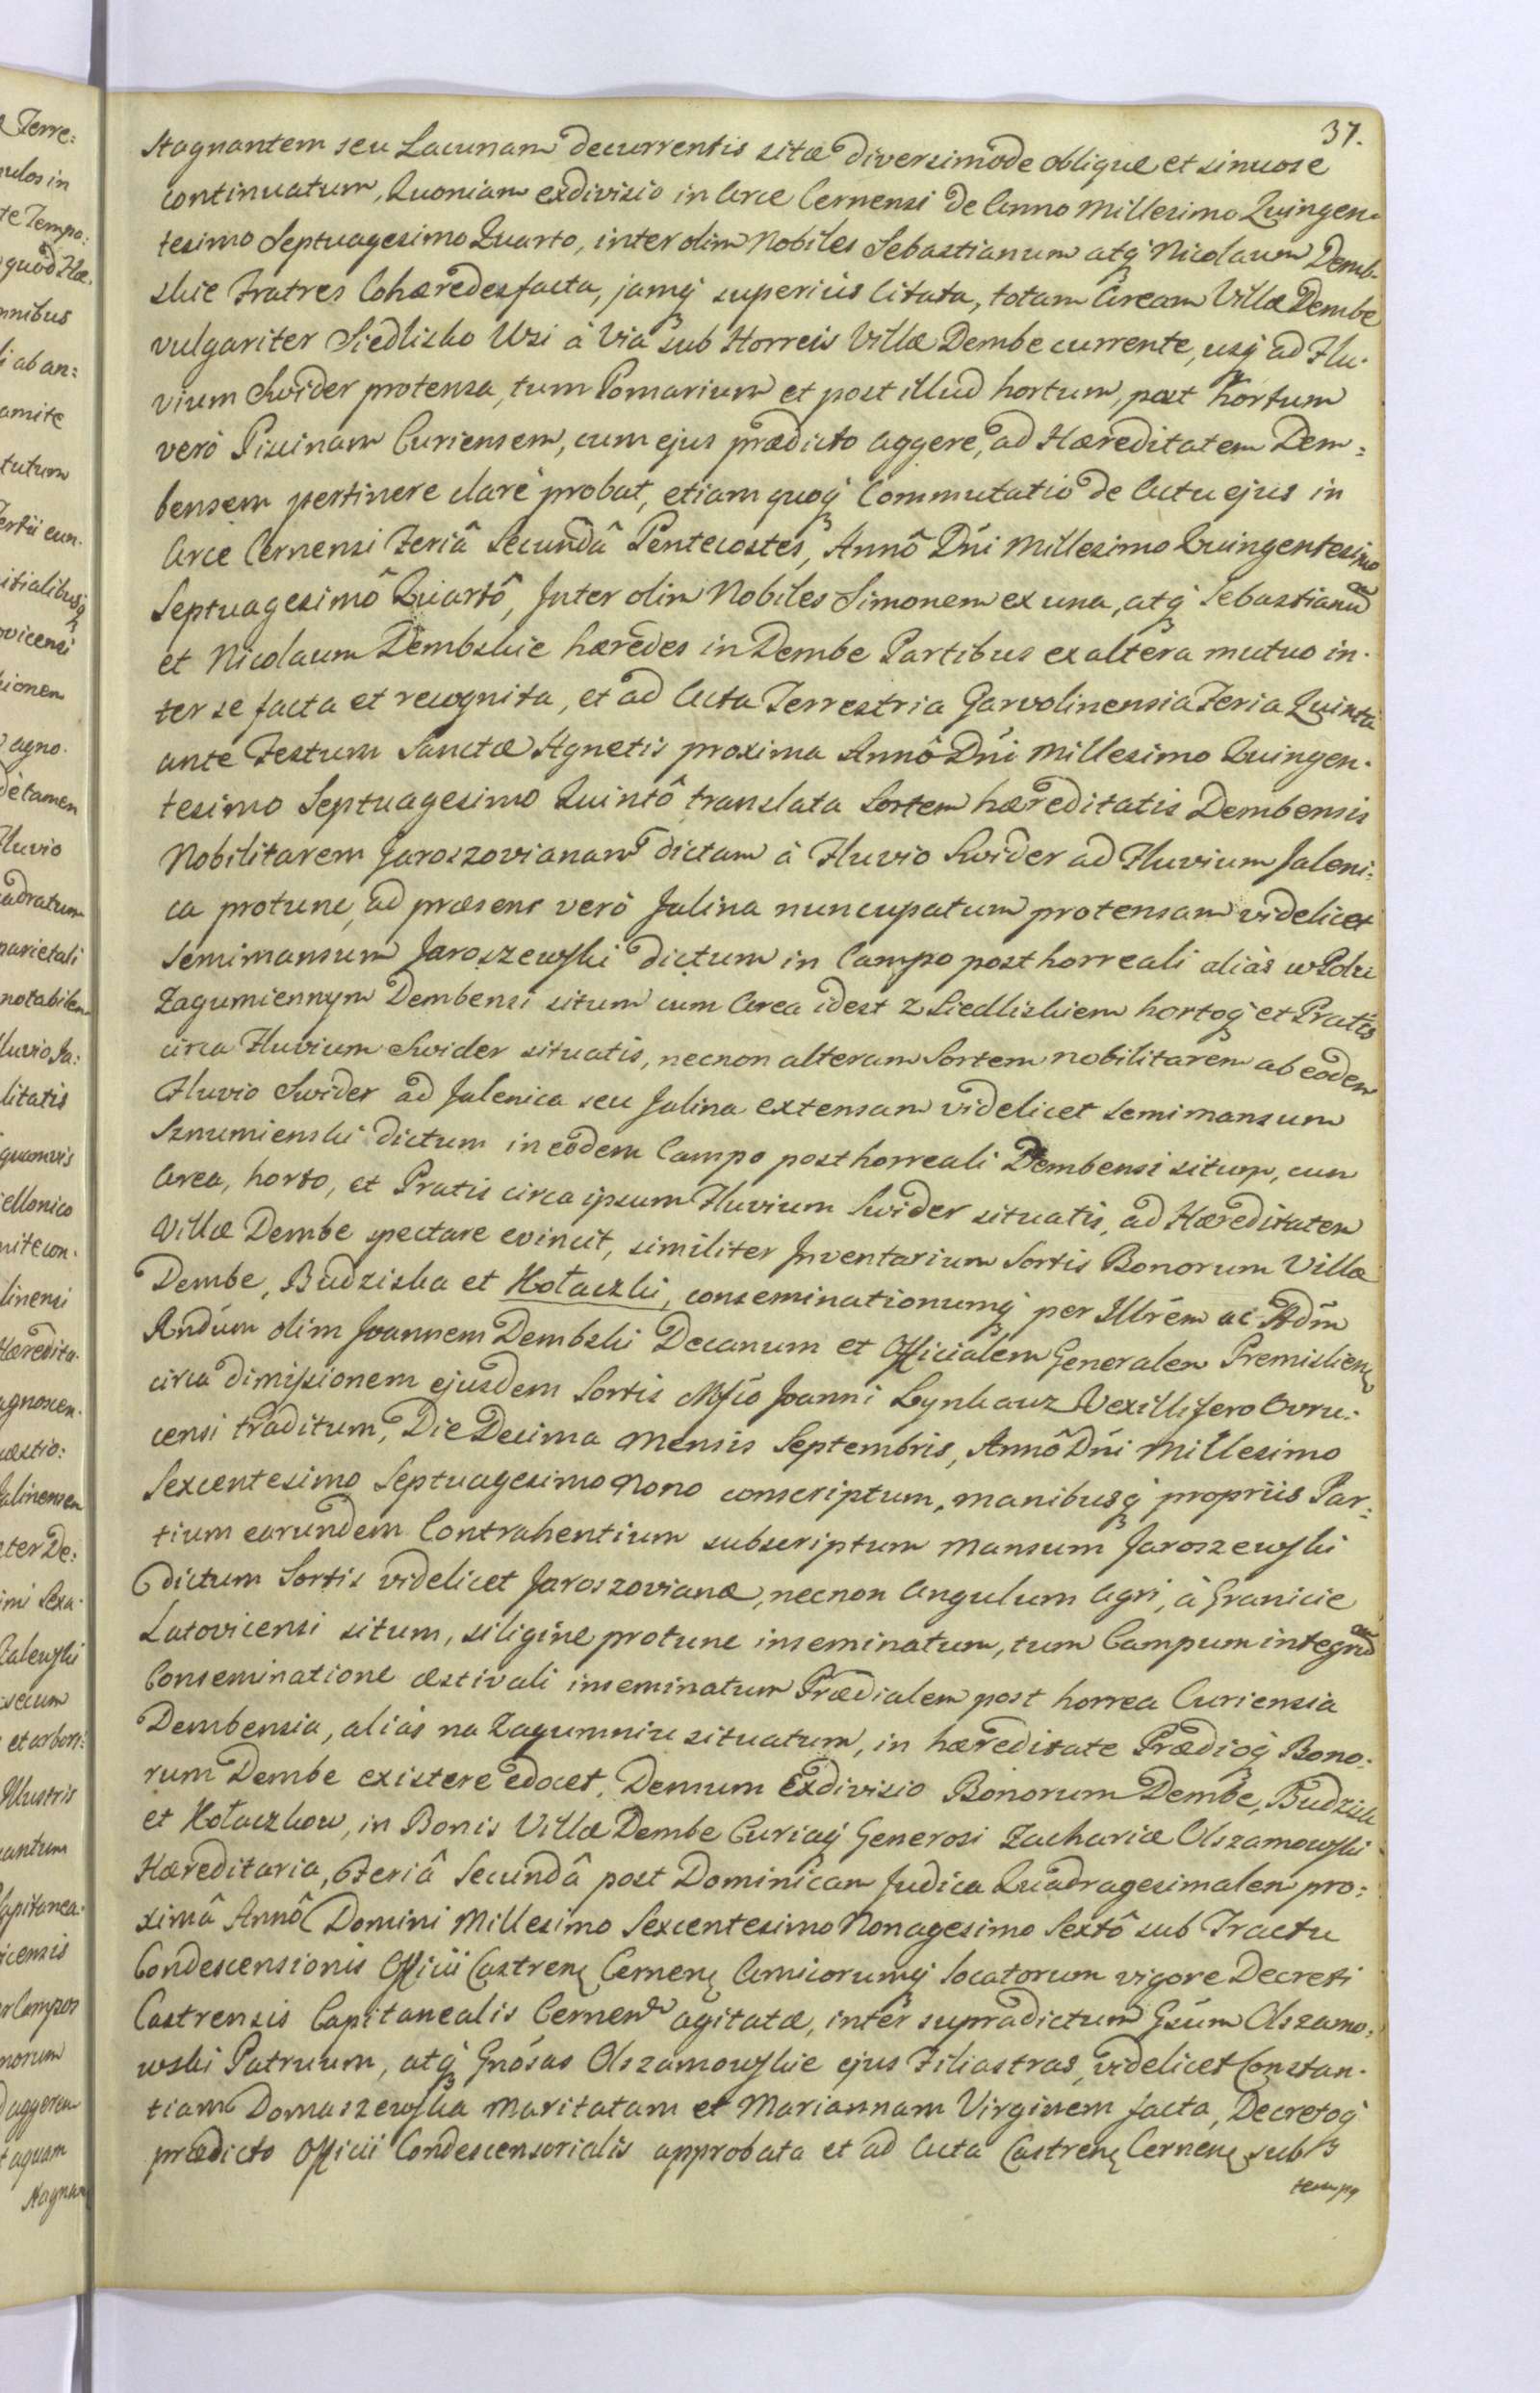 37.
Stagnantem seu Lacunam decurrentis sitæ diversimode oblique et sinuose
continuatum, Quoniam exdivisio in Arce Cernensi de Anno Millesimo Quingen-
tesimo Septuagesimo Quarto, inter olim Nobiles Sebastianum atq́ Nicolaum Demb-
skie Fratres Cohæredes facta, jamq́ superiús Citata, totam Aream Villæ Dembe
vulgariter Siedlisko Wsi à Via sub Horreis Villæ Dembe currente, usq́ ad Flu-
vium Swider protensa, tum Pomarium et post illud hortum, post hortum
verò Piscinam Curiensem, cum ejus prædicto Aggere, ad Hæreditatem Dem=
bensem pertinere clarè probat, etiam quoq́ Commutatio de Actu ejus in
Arce Cernensi Feriâ Secundâ Pentecostes, Annô Dńi Millesimo Quingentesimo
Septuagesimô Quartô, Inter olim Nobiles Simonem ex una, atq́ Sebastianū
et Nicolaum Dembskie hæredes in Dembe Partibus ex altera mutuo in-
ter se facta et recognita, et ad Acta Terrestria Garvolinensia Feria Quinta
ante Festum Sanctæ Agnetis proxima Annô Dńi Millesimo Quingen-
tesimo Septuagesimo Quintô translata Sortem hæreditatis Dembensis
Nobilitarem Jaroszovianam dictam à Fluvio Swider ad Fluvium Jaleni=
ca protunc, ad præsens verò Jalina nuncupatum protensam videlicet
Semimansum Jaroszewski dictum in Campo post horreali aliàs w Polu
Zagumiennym Dembensi situm cum Area idest z Siedliskiem hortoq́ et Pratis
circa Fluvium Swider situatis, necnon alteram Sortem nobilitarem ab eodem
Fluvio Swider ad Jalenica seu Jalina extensam videlicet semimansum
Sznumienski dictum in eodem Campo posthorreali Dembensi situm, cum
Area, horto, et Pratis circa ipsum Fluvium Swider situatis, ad Hæreditatem
Villæ Dembe spectare evincit, similiter Inventarium Sortis Bonorum Villæ
Dembe, Budziska et Kołaczki, conseminationumq́ per Illrém ac Adm̃
Rndúm olim Joannem Dembski Decanum et Officialem Generalem Premislien̨
circa dimissionem ejusdem Sortis Mfćo Joanni Lynkauz Vexillifero Ovru-
censi traditum, Die Decima Mensis Septembris, Annô Dńi Millesimo
Sexcentesimo Septuagesimo Nono conscriptum, manibusq́ propriis Par=
tium earundem Contrahentium subscriptum Mansum Jaroszewski
dictum Sortis videlicet Jaroszovianæ, necnon Angulum Agri, à Granicie
Latovicensi situm, siligine protunc inseminatum, tum Campum integrū
Conseminatione æstivali inseminatum Prædialem post horrea Curiensia
Dembensia, aliàs na Zagumniu situatum, in hæreditate Prædioq́ Bono-
rum Dembe existere edocet. Demum Exdivisio Bonorum Dembe, Budzisk
et Kołaczkow, in Bonis Villæ Dembe Curiaq́ Generosi Zachariæ Olszamowski
Hæreditaria, Feriâ Secundâ post Dominicam Judica Quadragesimalem pro=
ximâ Annô Domini Millesimo Sexcentesimo Nonagesimo Sextô sub Tractu
Condescensionis Officii Castren̨ Cernen̨ Amicorumq́ locatorum vigore Decreti
Castrensis Capitanealis Cernen̨ agitatæ, inter supradictum Gsúm Olszamo-
wski Patruum, atq́ Gnósas Olszamowskie ejus Filiastras, videlicet Constan-
tiam Domaszewska Maritatam et Mariannam Virginem facta, Decretoq́
prædicto Officii Condescensorialis approbata et ad Acta Castren̨ Cernen̨ sub